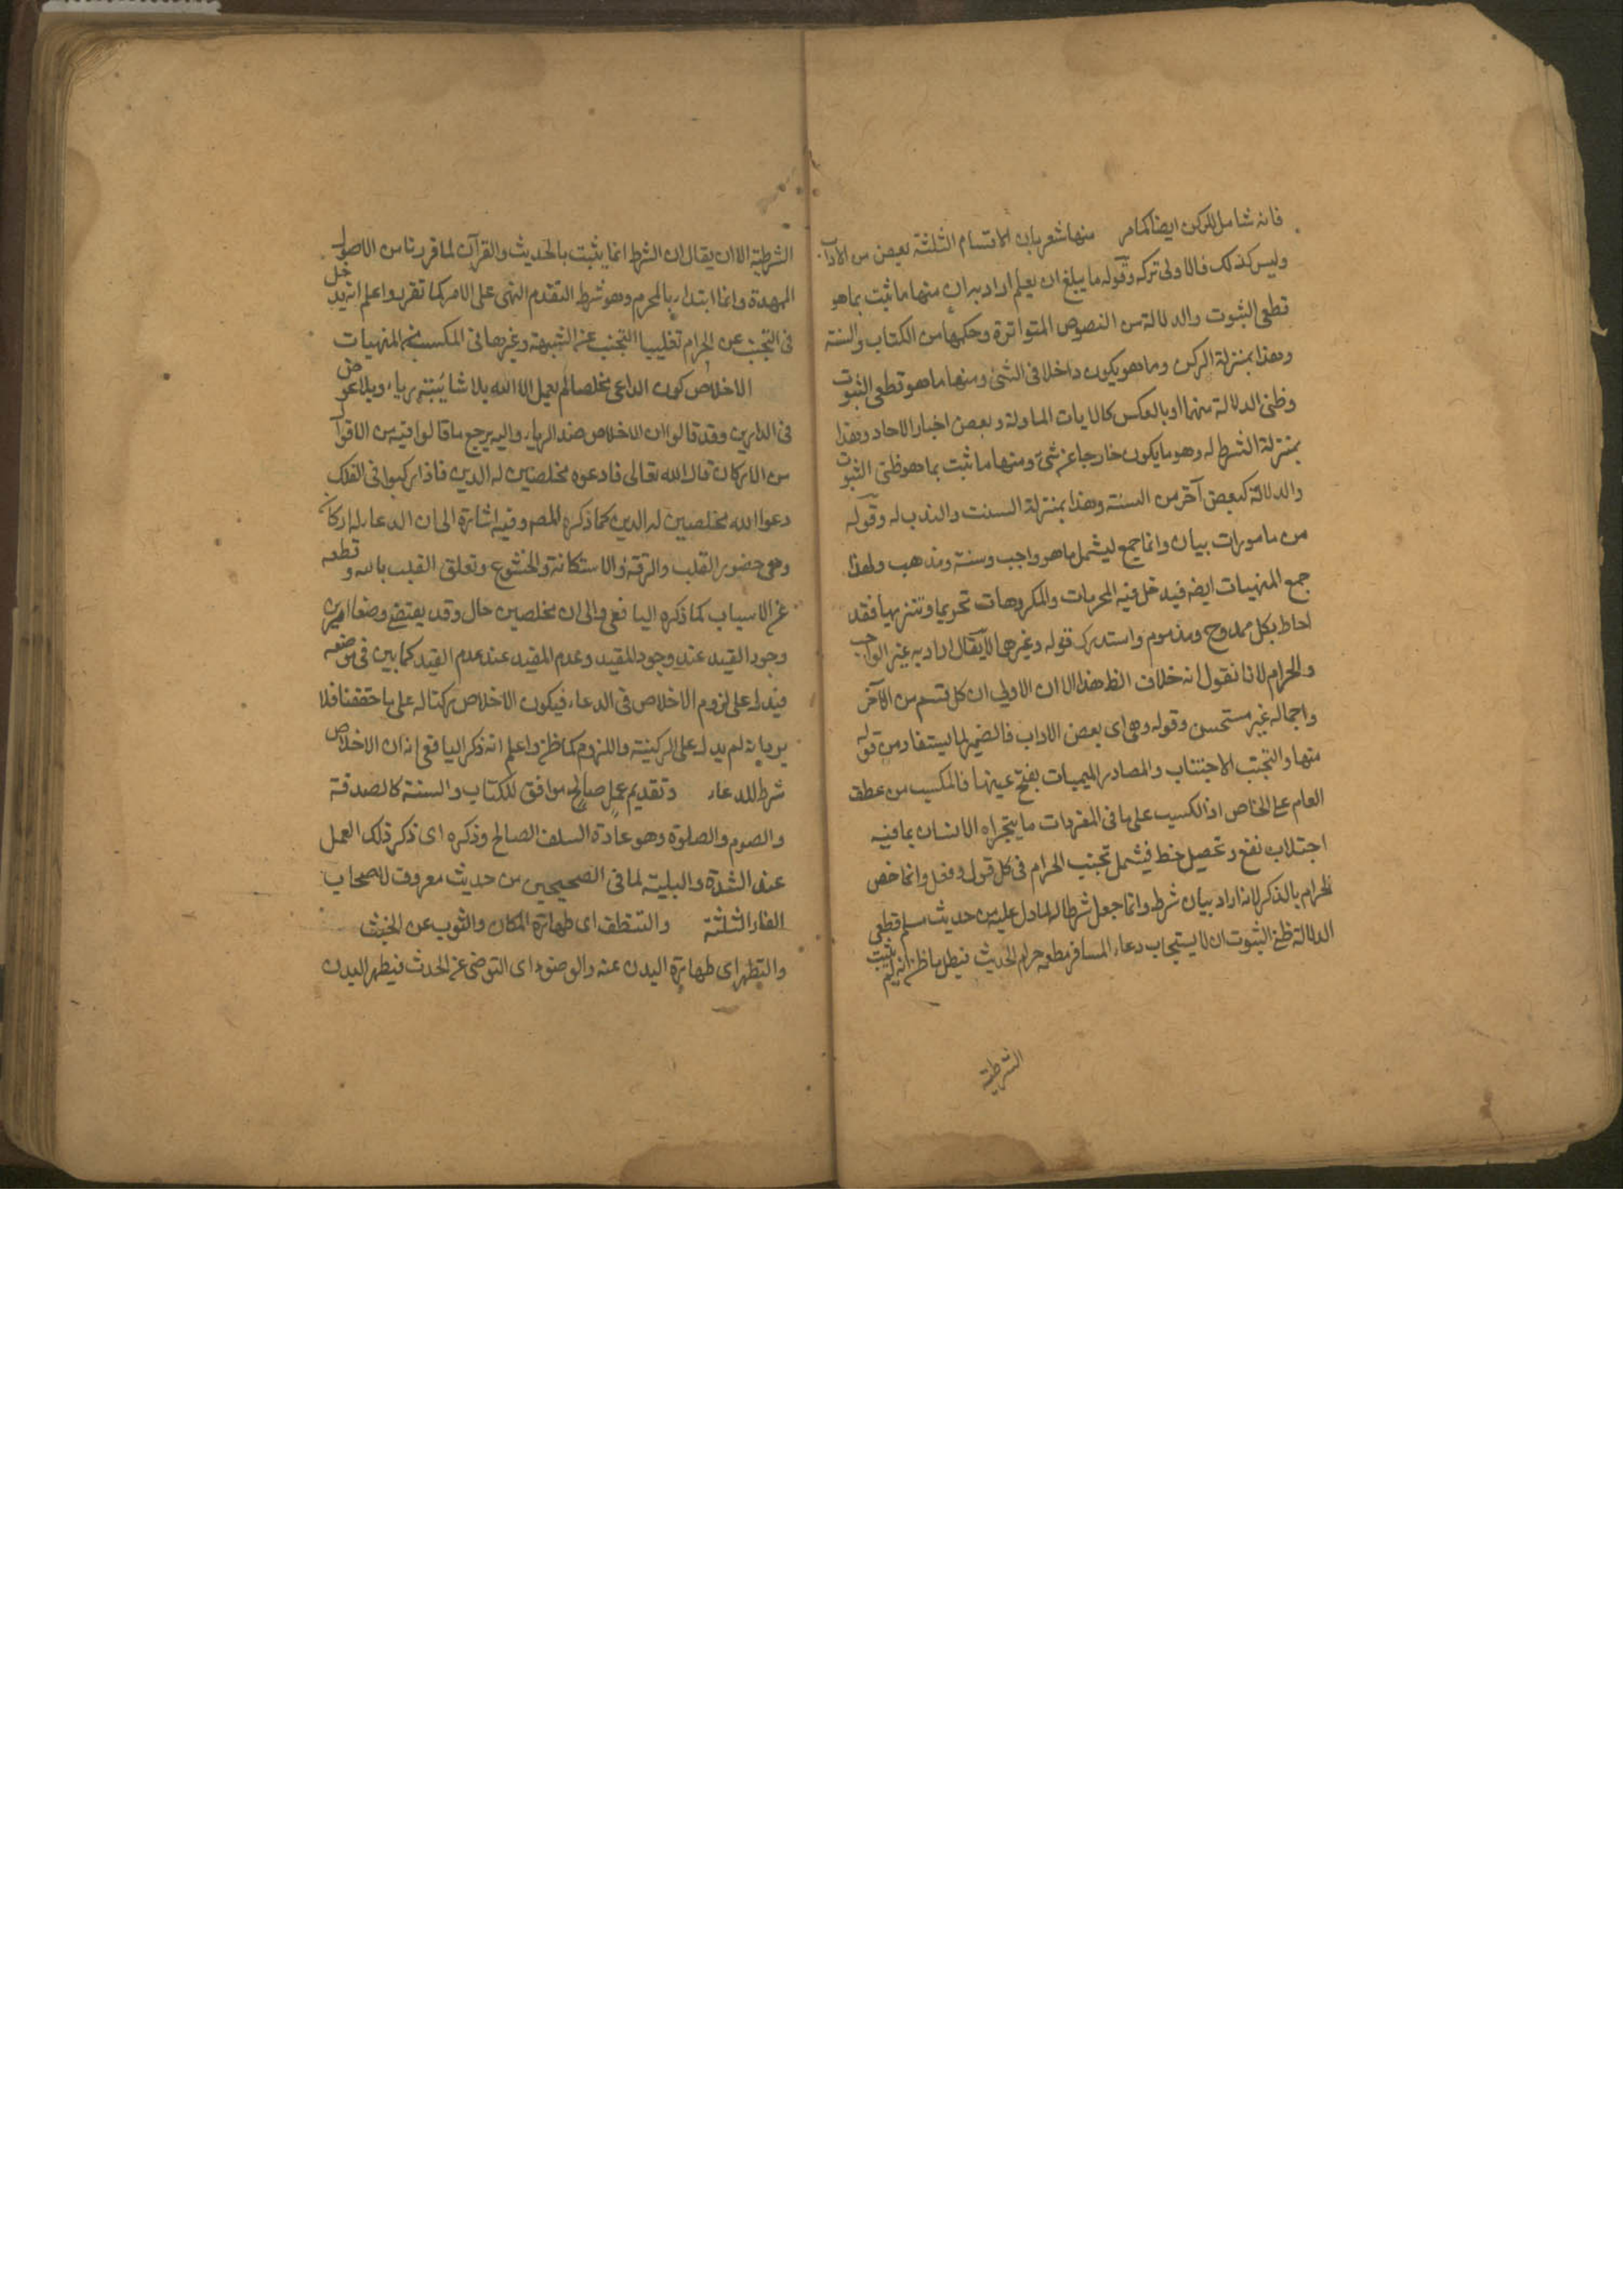 فانه شامل للركن ايضا كما مر منها شعر بان الاقسام الثلثة بعض من الاداب
وليس كذلك فالاولى تركه وقوله ما يبلغ ان يعلم اراد به ان منها ما ثبت بما هو
قطعى الثبوت والدلالة من النصوص المتواترة وحكمها من الكتاب والسنة
وهذا بمنزلة الركن وما هو يكون داخلا فى الشئ ومنها ما هو قطعى الثبوت
وظنى الدلالة منهما او بالعكس كالايات الماولة وبعض اخبار الاحاد وهذا
بمنزلة الشرط له وهو ما يكون خارجا عن شئ ومنها ما ثبت بما هو ظنى الثبوت
والدلالة كبعض آخر من السنة وهذا بمنزلة السنت والندب له وقوله
من مامورات بيان وانما جمع ليشمل ما هو واجب وسنة ومندهب ولهذا
جمع المنهيات ايضه فيدخل فيه المحرمات والمكروهات تحريما وتنزيها فقد
احاط بكل ممدوح ومذموم واستدرك قوله وغيرها لا يقال اراد به غير الواجب
والحرام لانا نقول انه خلاف الظ هذا الا ان الاولى ان كل قسم من الآخر
واجماله غير مستحسن وقوله وهى اى بعض الاداب فالضمير لما يستفاد من قوله
منها والتجنب الاجتناب والمصادر الميميات بفتح عينها فالمكسب من عطف
العام على الخاص اذ الكسب على ما فى المفردات ما يتجراه الانسان بما فيه
اجتلاب نفع وتحصيل خط فيشمل تجنب الحرام فى كل قول وفعل وانما خص
الحرام بالذكر لانه اراد بيان شرط وانما جعل شرطا لما دل عليه من حديث مسلم قطعى
الدلالة ظنى الثبوت ان لا يستجاب دعاء المسافر مطعمه حرام الحديث فبطل ما ظن انه لم يثبت
الشرطية
الشرطية الا ان يقال ان الشرط انما يثبت بالحديث والقرآن لما قررنا من الاصول
الممهدة وانما ابتداء بالمحرم وهو شرط لتقدم النهى على الامر كما تقرر واعلم انه يدخل
فى التجنب عن الحرام تغليبا التجنب عن الشبهة وغيرها فى المكسب من المنهيات
الاخلاص كون الداعى مخلصا لم يعمل الا الله بلا شائبة رياء وبلا عوض
فى الدارين وقد قالوا ان الاخلاص ضد الرياء واليه يرجع ما قالوا فيه من الاقوال
من الاركان قال الله تعالى فادعوه مخلصين له الدين فاذا ركبوا فى الفلك
دعوا الله مخلصين له الدين كما ذكره المصم وفيه اشارة الى ان الدعاء له اركان
وهى حضور القلب والرقة والاستكانة والخشوع وتعلق القلب بالله وقطعه
عن الاسباب كما ذكره اليافعى والى ان مخلصين حال وقد يقتضى وضعا امرين
وجود القيد عند وجود المقيد وعدم المقيد عند عدم القيد كما بين فى موضعه
فيدل على لزوم الاخلاص فى الدعاء فيكون الاخلاص ركنا له على ما حققنا فلا
يرد بانه لم يدل على الركنية واللزوم كما ظن واعلم انه ذكر اليافعى انه ان الاخلاص
شرط للدعاء وتقديم عمل صالح موافق للكتاب والسنة كالصدقة
والصوم والصلوة وهو عادة السلف الصالح وذكره اى ذكر ذلك العمل
عند الشدة والبلية لما فى الصحيحين من حديث معروف لاصحاب
الغار الثلثة والتنظف اى طهارة المكان والثوب عن الخبث
والتطهر اى طهارة البدن عنه والوضوء اى التوضى عن الحدث فيطهر البدن